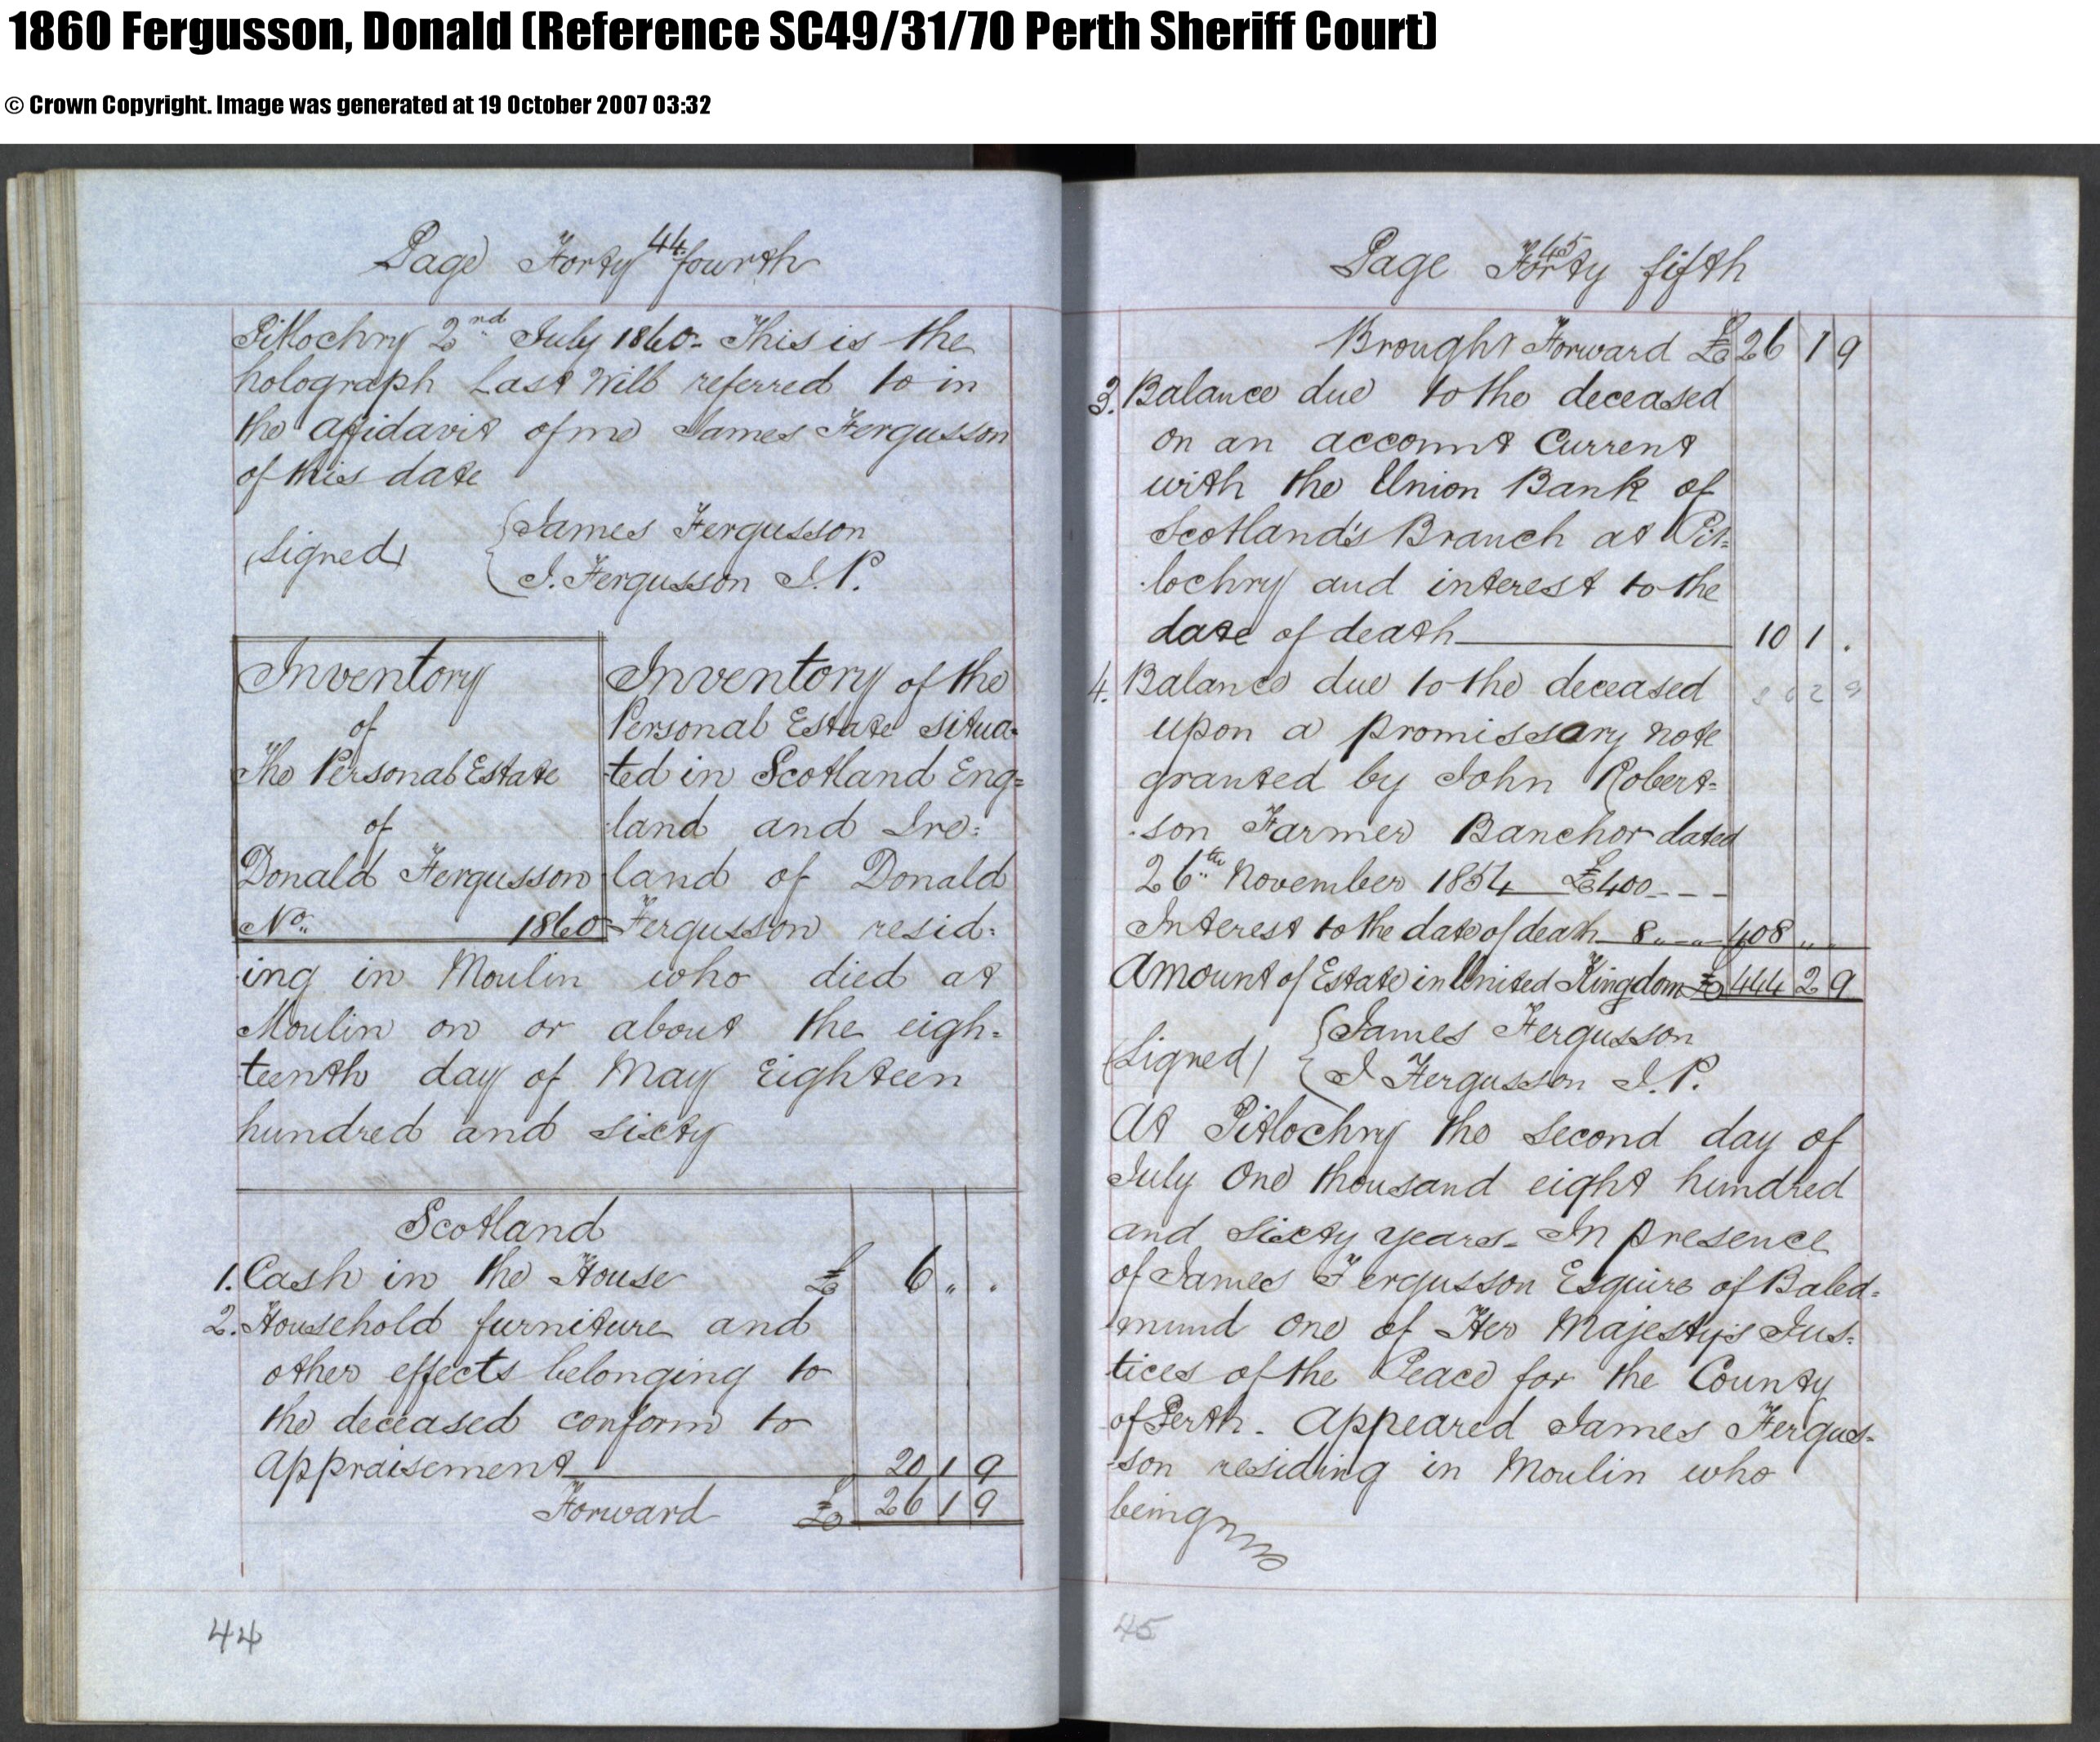 1860 Fergusson, Donald (Reference SC49/31/70 Perth Sheriff Court)
© Crown Copyright. Image was generated at 19 October 2007 03:32
44
Page Forty fourth
Pitlochry 2nd July 1860 - This is the
holograph Last Will referred to in
the affidavit of me James Fergusson
of this date
(Signed) {James Fergusson
{J. Fergusson J.P.
Inventory
of
The Personal Estate
of
Donald Fergusson
No. 1860
Inventory of the
Personal Estate situa-
ted in Scotland Eng=
land and Ire:
land of Donald
Fergusson resid:
ing in Moulin who died at
Moulin on or about the eigh=
teenth day of May Eighteen
hundred and sixty
Scotland
1. Cash in the House £ 6 " "
2. Household furniture and
other effects belonging to
the deceased conform to
appraisement 20 1 9
Forward £ 26 1 9
44
45
Page Forty fifth
Brought Forward £ 26 1 9
3. Balance due to the deceased
on an account Current
with the Union Bank of
Scotland's Branch at Pit=
lochry and interest to the
date of death 10 1 .
4. Balance due to the deceased
upon a promissary note
granted by John Robert=
son Farmer Banchor dated
26th November 1854 £400 - - -
Interest to the date of death 8 " - " 408 " "
Amount of Estate in United Kingdom £ 444 2 9
(Signed) {James Fergusson
{J Fergusson J.P.
At Pitlochry the second day of
July One thousand eight hundred
and sixty years - In presence
of James Fergusson Esquire of Baled=
mund one of Her Majesty's Jus=
tices of the Peace for the County
of Perth - Appeared James Fergus=
son residing in Moulin who
being
45